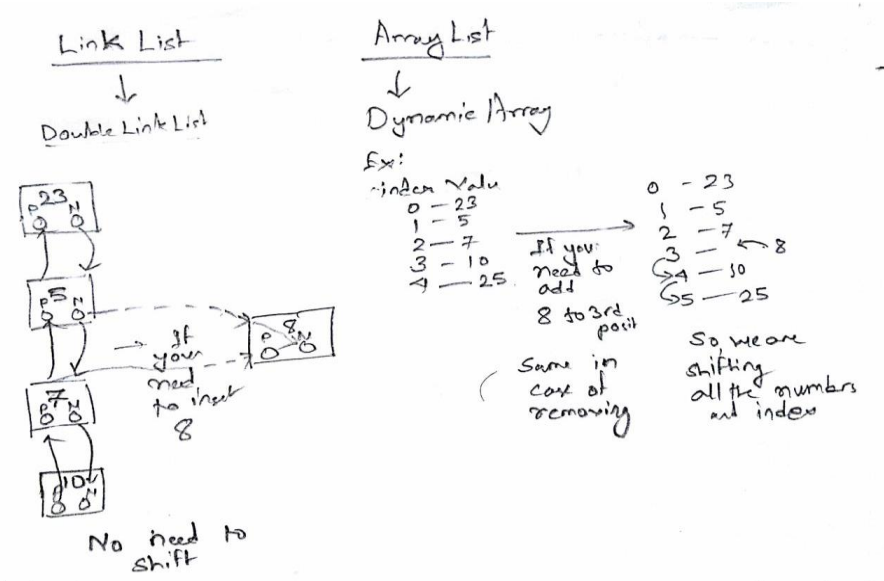 Link List
Double Link List
23
P N
5
P N
7
P N
10
P N
If
your
need
to inset
8
8
P N
No need to
shift
Array List
Dynamic Array
Ex:
index Value
0 - 23
1 - 5
2 - 7
3 - 10
4 - 25
If you
need to
add
8 to 3rd
posit
Same in
case of
removing
0 - 23
1 - 5
2 - 7
3 - 8
4 - 10
5 - 25
So, we are
shifting
all the numbers
and index